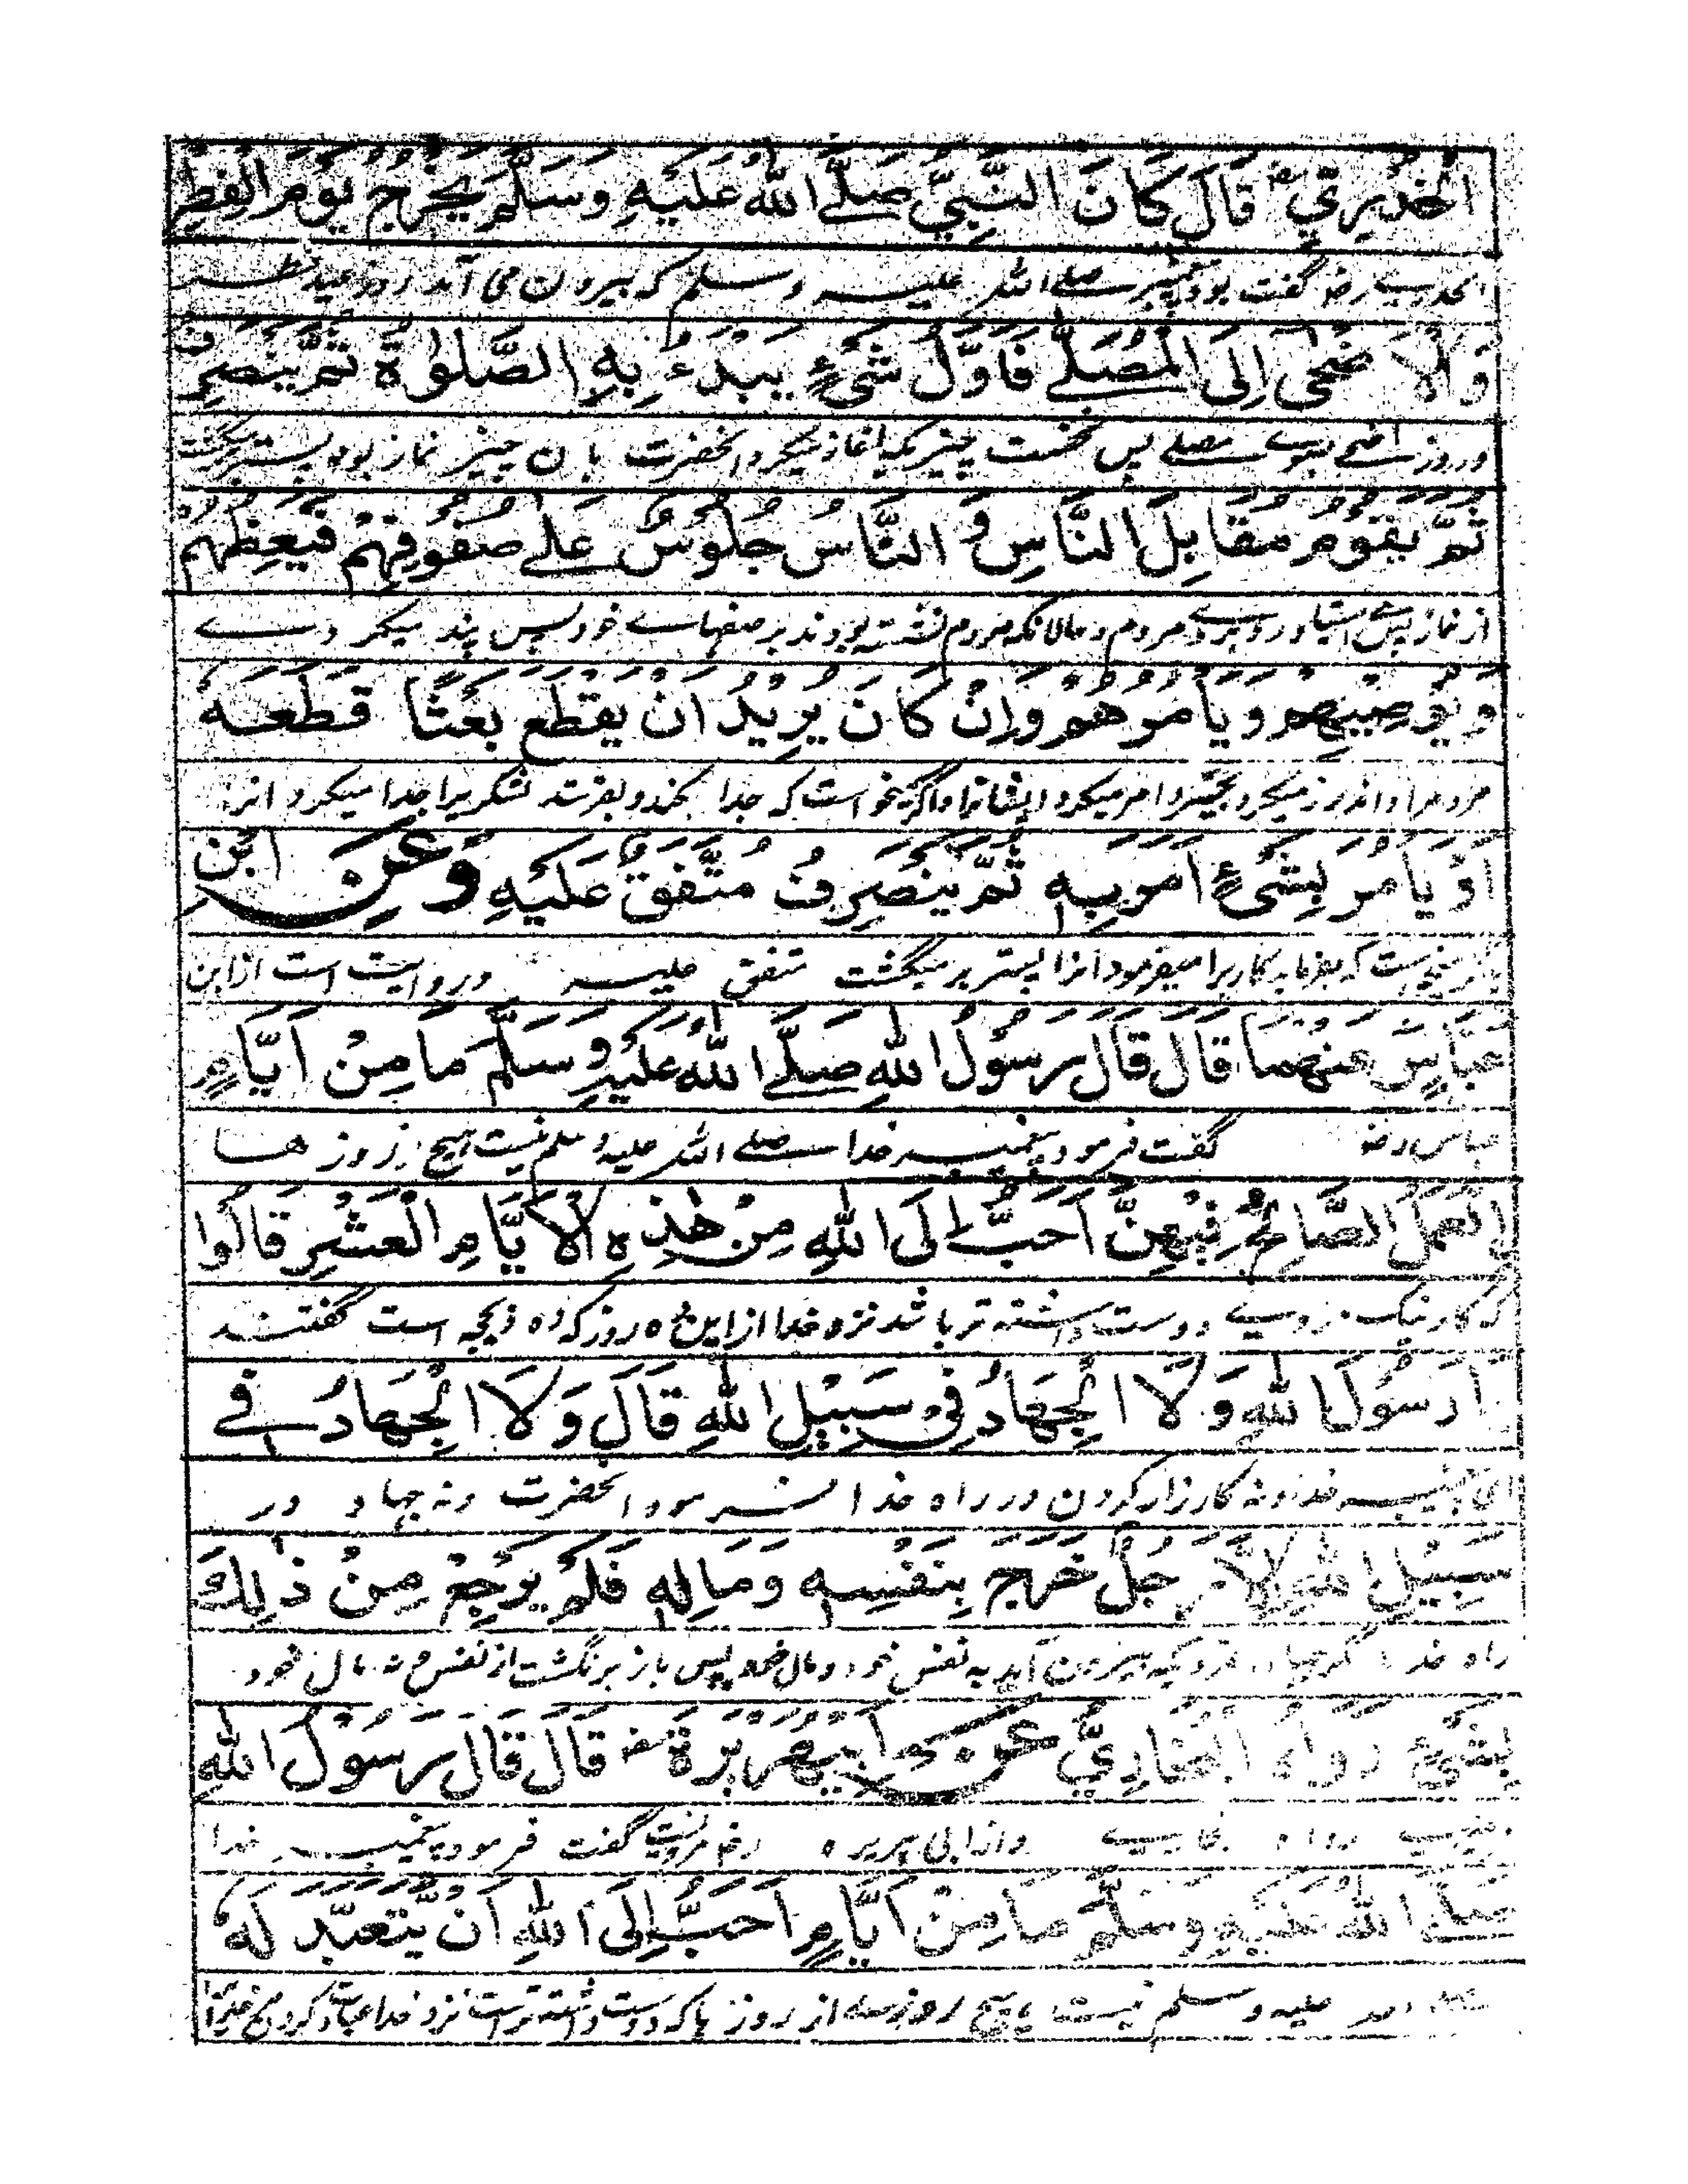 الْخُدْرِيِّ رض قَالَ كَانَ النَّبِيُّ صَلَّے اللهُ عَلَيْهِ وَسَلَّمَ يَخْرُجُ يَوْمَ الْفِطْرِ
الخدری رضہ گفت بود پیغمبر صلے اللہ علیہ وسلم کہ بیرون می آمد روز عید فطر
وَالْاَضْحٰى اِلَى الْمُصَلّٰے فَاَوَّلُ شَيْءٍ يَبْدَءُ بِهِ الصَّلٰوةُ ثُمَّ يَنْصَرِفُ
وروز اضحے بسوے مصلے پس نخست چیزیکہ آغاز میکرد آنحضرت بان چیز نماز بود پستر برمیگشت
ثُمَّ يَقُوْمُ مُقَابِلَ النَّاسِ وَ النَّاسُ جُلُوْسٌ عَلٰے صُفُوْفِهِمْ فَيَعِظُهُمْ
از نماز پس استاد روبروے مردم و حالانکہ مردم نشستہ بودند بر صفہاے خود پس پند میکرد
وَيُوْصِيْهِمْ وَيَأْمُرُهُمْ وَاِنْ كَانَ يُرِيْدُ اَنْ يَقْطَعَ بَعْثًا قَطَعَهٗ
مردم را و اندرز میکرد و امر میکرد ایشانرا و اگر میخواست کہ جدا بکند و بفرستد لشکریرا جدا میکرد انرا
اَوْ يَأْمُرَ بِشَيْءٍ اَمَرَ بِهٖ ثُمَّ يَنْصَرِفُ مُتَّفَقٌ عَلَيْهِ وَعَنِ ابْنِ
کہ بفرماید کاریرا میفرمود انرا پستر برمیگشت متفق علیہ وروایت است از ابن
عَبَّاسٍ عنهما قَالَ قَالَ رَسُوْلُ اللهِ صَلَّے اللهُ عَلَيْهِ وَسَلَّمَ مَا مِنْ اَيَّامٍ
عباس رضہ گفت فرمود پیغمبر خدا صلے اللہ علیہ وسلم نیست هیچ از روز ها
الْعَمَلُ الصَّالِحُ فِيْهِنَّ اَحَبُّ اِلَى اللهِ مِنْ هٰذِهِ الْاَيَّامِ الْعَشْرِ قَالُوْا
کہ کار نیک دروے دوست داشتہ تر باشد نزد خدا ازاین دہ روز کہ دہ ذیحجہ است گفتند
يَا رَسُوْلَ اللهِ وَلَا الْجِهَادُ فِيْ سَبِيْلِ اللهِ قَالَ وَلَا الْجِهَادُ فِے
ای پیغمبر خدا ونہ کارزار کردن در راہ خدا فرمود آنحضرت ونہ جہاد در
سَبِيْلِ اللهِ اِلَّا رَجُلٌ خَرَجَ بِنَفْسِهٖ وَمَالِهٖ فَلَمْ يَرْجِعْ مِنْ ذٰلِكَ
راہ خدا مگر جہاد مردیکہ بیرون آید بہ نفس خود و مال خود پس باز برنگشت از نفس و مال خود
بِشَيْءٍ رَوَاهُ الْبُخَارِيُّ وَعَنْ اَبِيْ هُرَيْرَةَ رض قَالَ قَالَ رَسُوْلُ اللهِ
رواہ بخاری وازابی ہریرہ رضہ گفت فرمود پیغمبر خدا
صَلَّے اللهُ عَلَيْهِ وَسَلَّمَ مَا مِنْ اَيَّامٍ اَحَبُّ اِلَى اللهِ اَنْ يُّتَعَبَّدَ لَهٗ
علیہ وسلم نیست ہیچ روزے از روز ہا کہ دوست داشتہ تر است نزد خدا